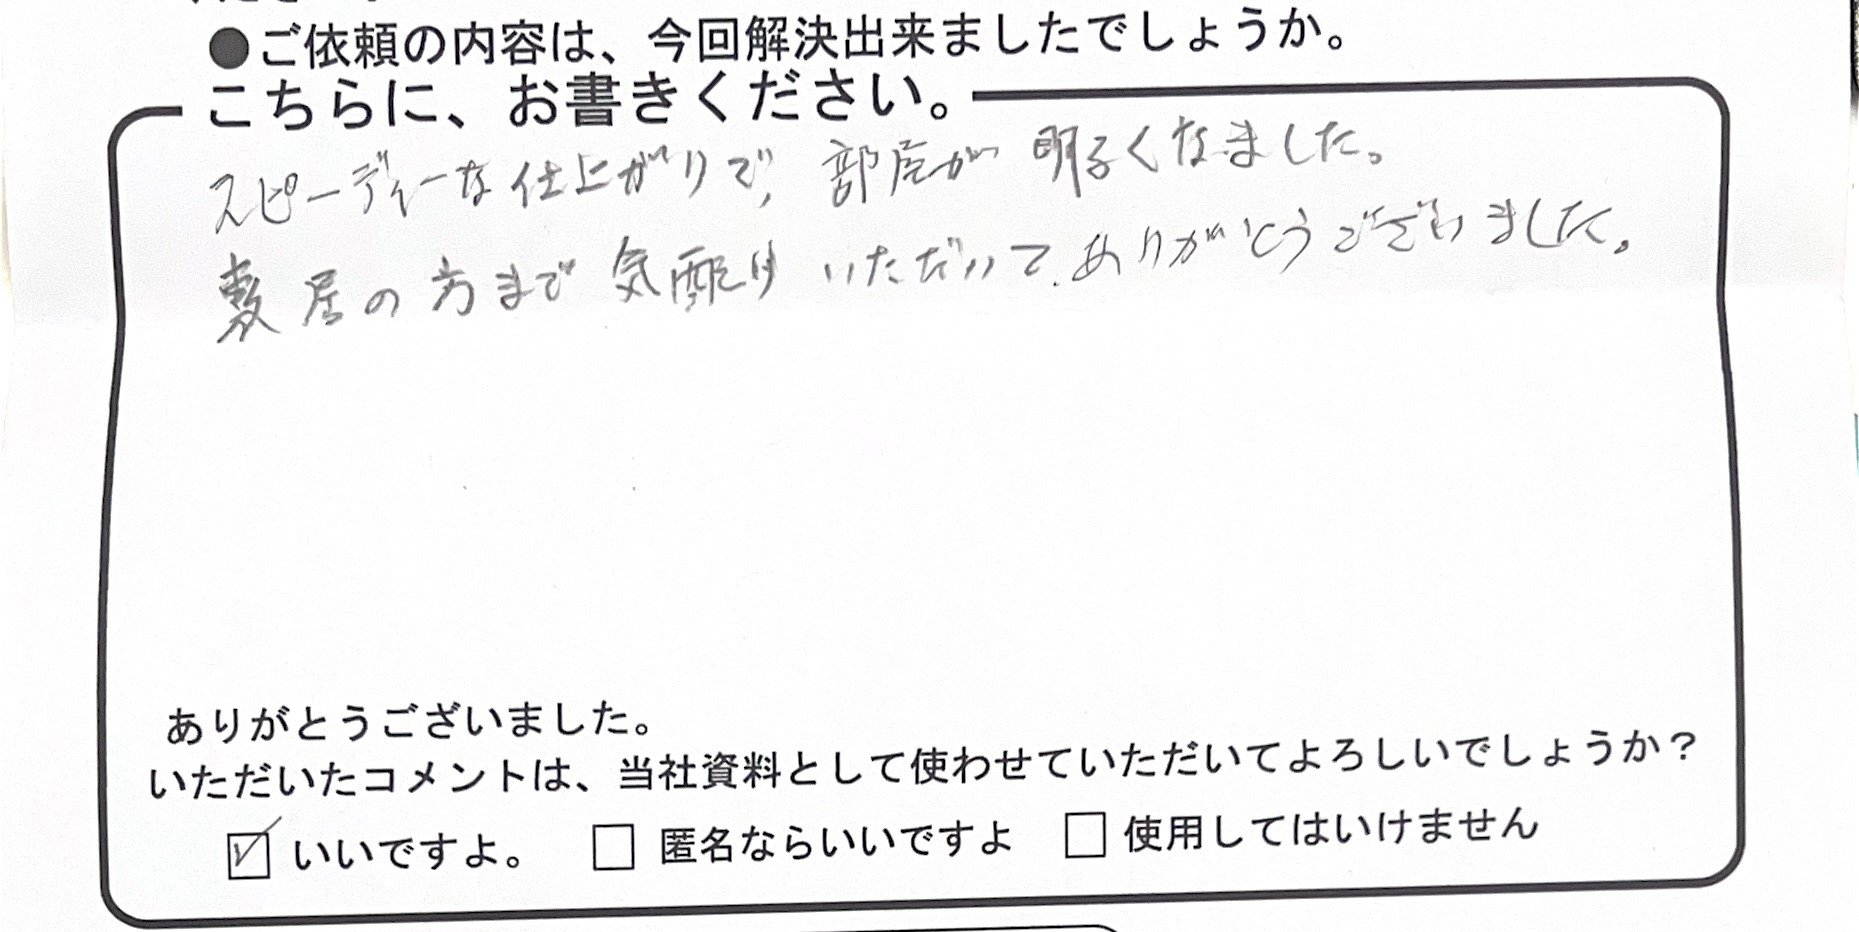 ●ご依頼の内容は、今回解決出来ましたでしょうか。
こちらに、お書きください。
スピーディーな仕上がりで、部屋が 明るくなました。
敷居の方まで気配り いただいて、ありがとうございました。
ありがとうございました。
いただいたコメントは、当社資料として使わせていただいてよろしいでしょうか？
☑ いいですよ。 □ 匿名ならいいですよ □ 使用してはいけません